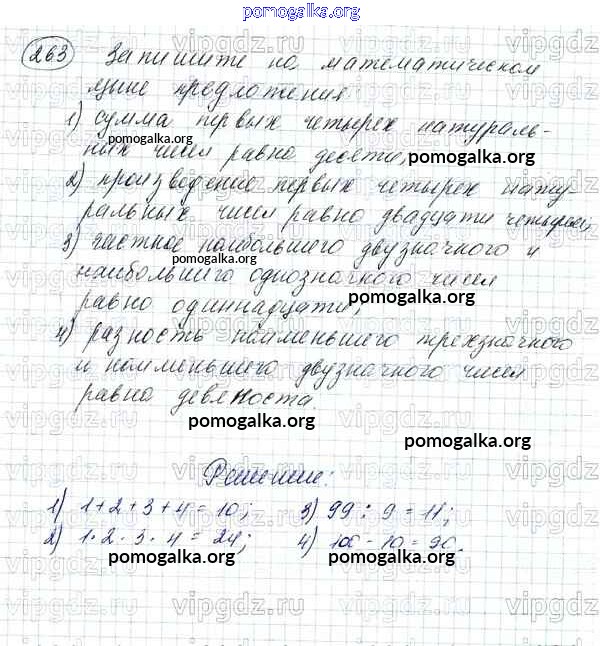 pomogalka.org
263 Запишите на математическом
языке предложения:
1) сумма первых четырех натураль-
ных чисел равна десяти;
2) произведение первых четырех нату
ральных чисел равно двадцати четырем;
3) частное наибольшего двузначного и
наибольшего однозначного чисел
равно одиннадцати;
4) разность наименьшего трехзначного
и наименьшего двузначного чисел
равна девяноста.
Решение:
1) 1+2+3+4=10; 3) 99:9=11;
2) 1·2·3·4=24; 4) 100-10=90.
pomogalka.org
pomogalka.org
pomogalka.org
pomogalka.org
pomogalka.org
pomogalka.org
pomogalka.org
pomogalka.org
vipgdz.ru